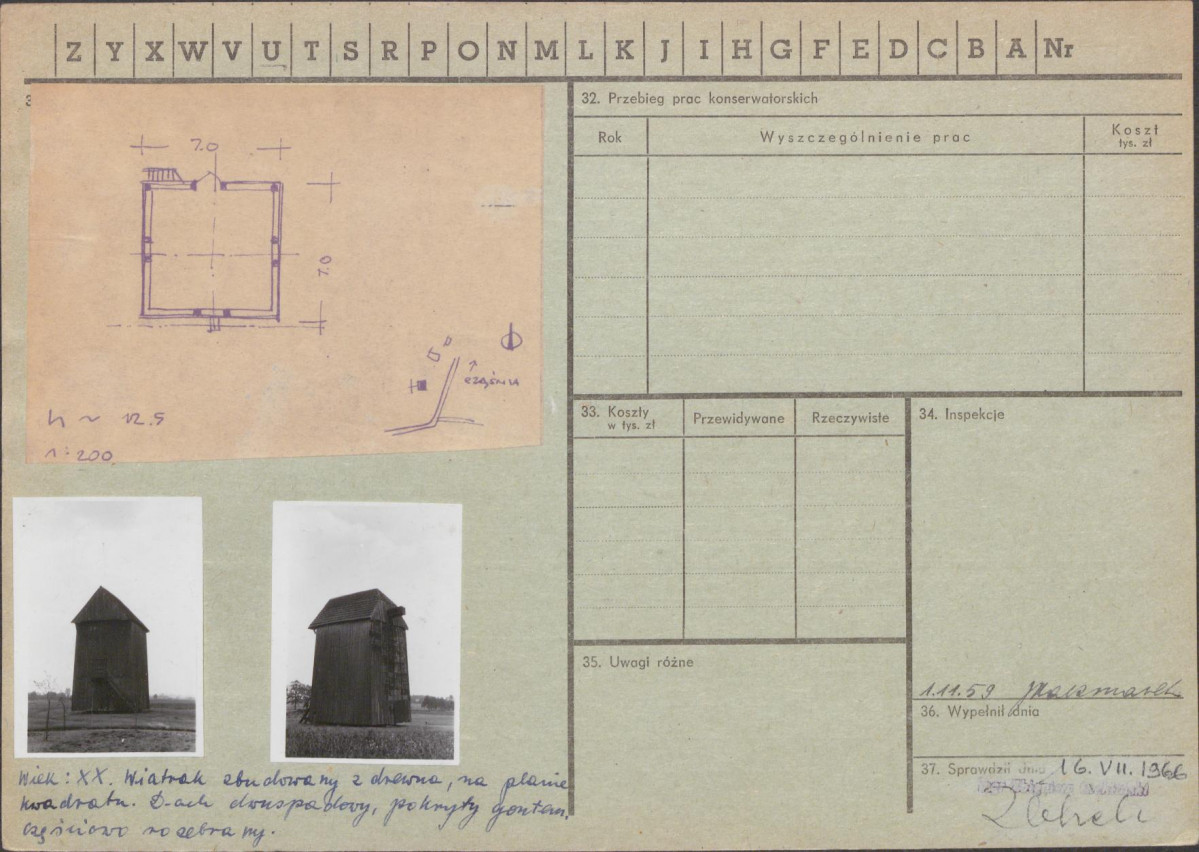 Z Y X W V U T S R P O N M L K J I H G F E D C B A Nr
3
7.0
7.0
h ~ 12.5
1:200
32. Przebieg prac konserwatorskich
Rok Wyszczególnienie prac Koszt
tys. zł
33. Koszty
w tys. zł
Przewidywane Rzeczywiste
34. Inspekcje
35. Uwagi różne
1.11.59
36. Wypełnił dnia
37. Sprawdził dnia 16.VII.1966
Wiek: XX. Wiatrak zbudowany z drewna, na planie
kwadratu. Dach dwuspadowy, pokryty gontem,
częściowo rozebrany.